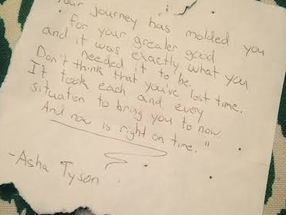 Your journey has molded you
for your greater good
and it was exactly what you
needed it to be.
Don't think that you've lost time.
It took each and every
situation to bring you to now
And now is right on time."
-Asha Tyson